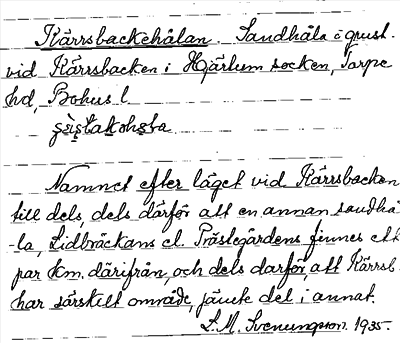 Kärrsbackehålan. Sandhåla i grust.
vid Kärrsbacken i Hjärtum socken, Torpe
hd, Bohus l.
Namnet efter läget vid Kärrsbacken
till dels, dels därför att en annan sandhå
-la, Lidbräckans el. Prästegårdens finnes ett
par km. därifrån, och dels darför, att Kärrsb.
har särskilt område, jämte del i annat.
L.M. Svenungson. 1935.